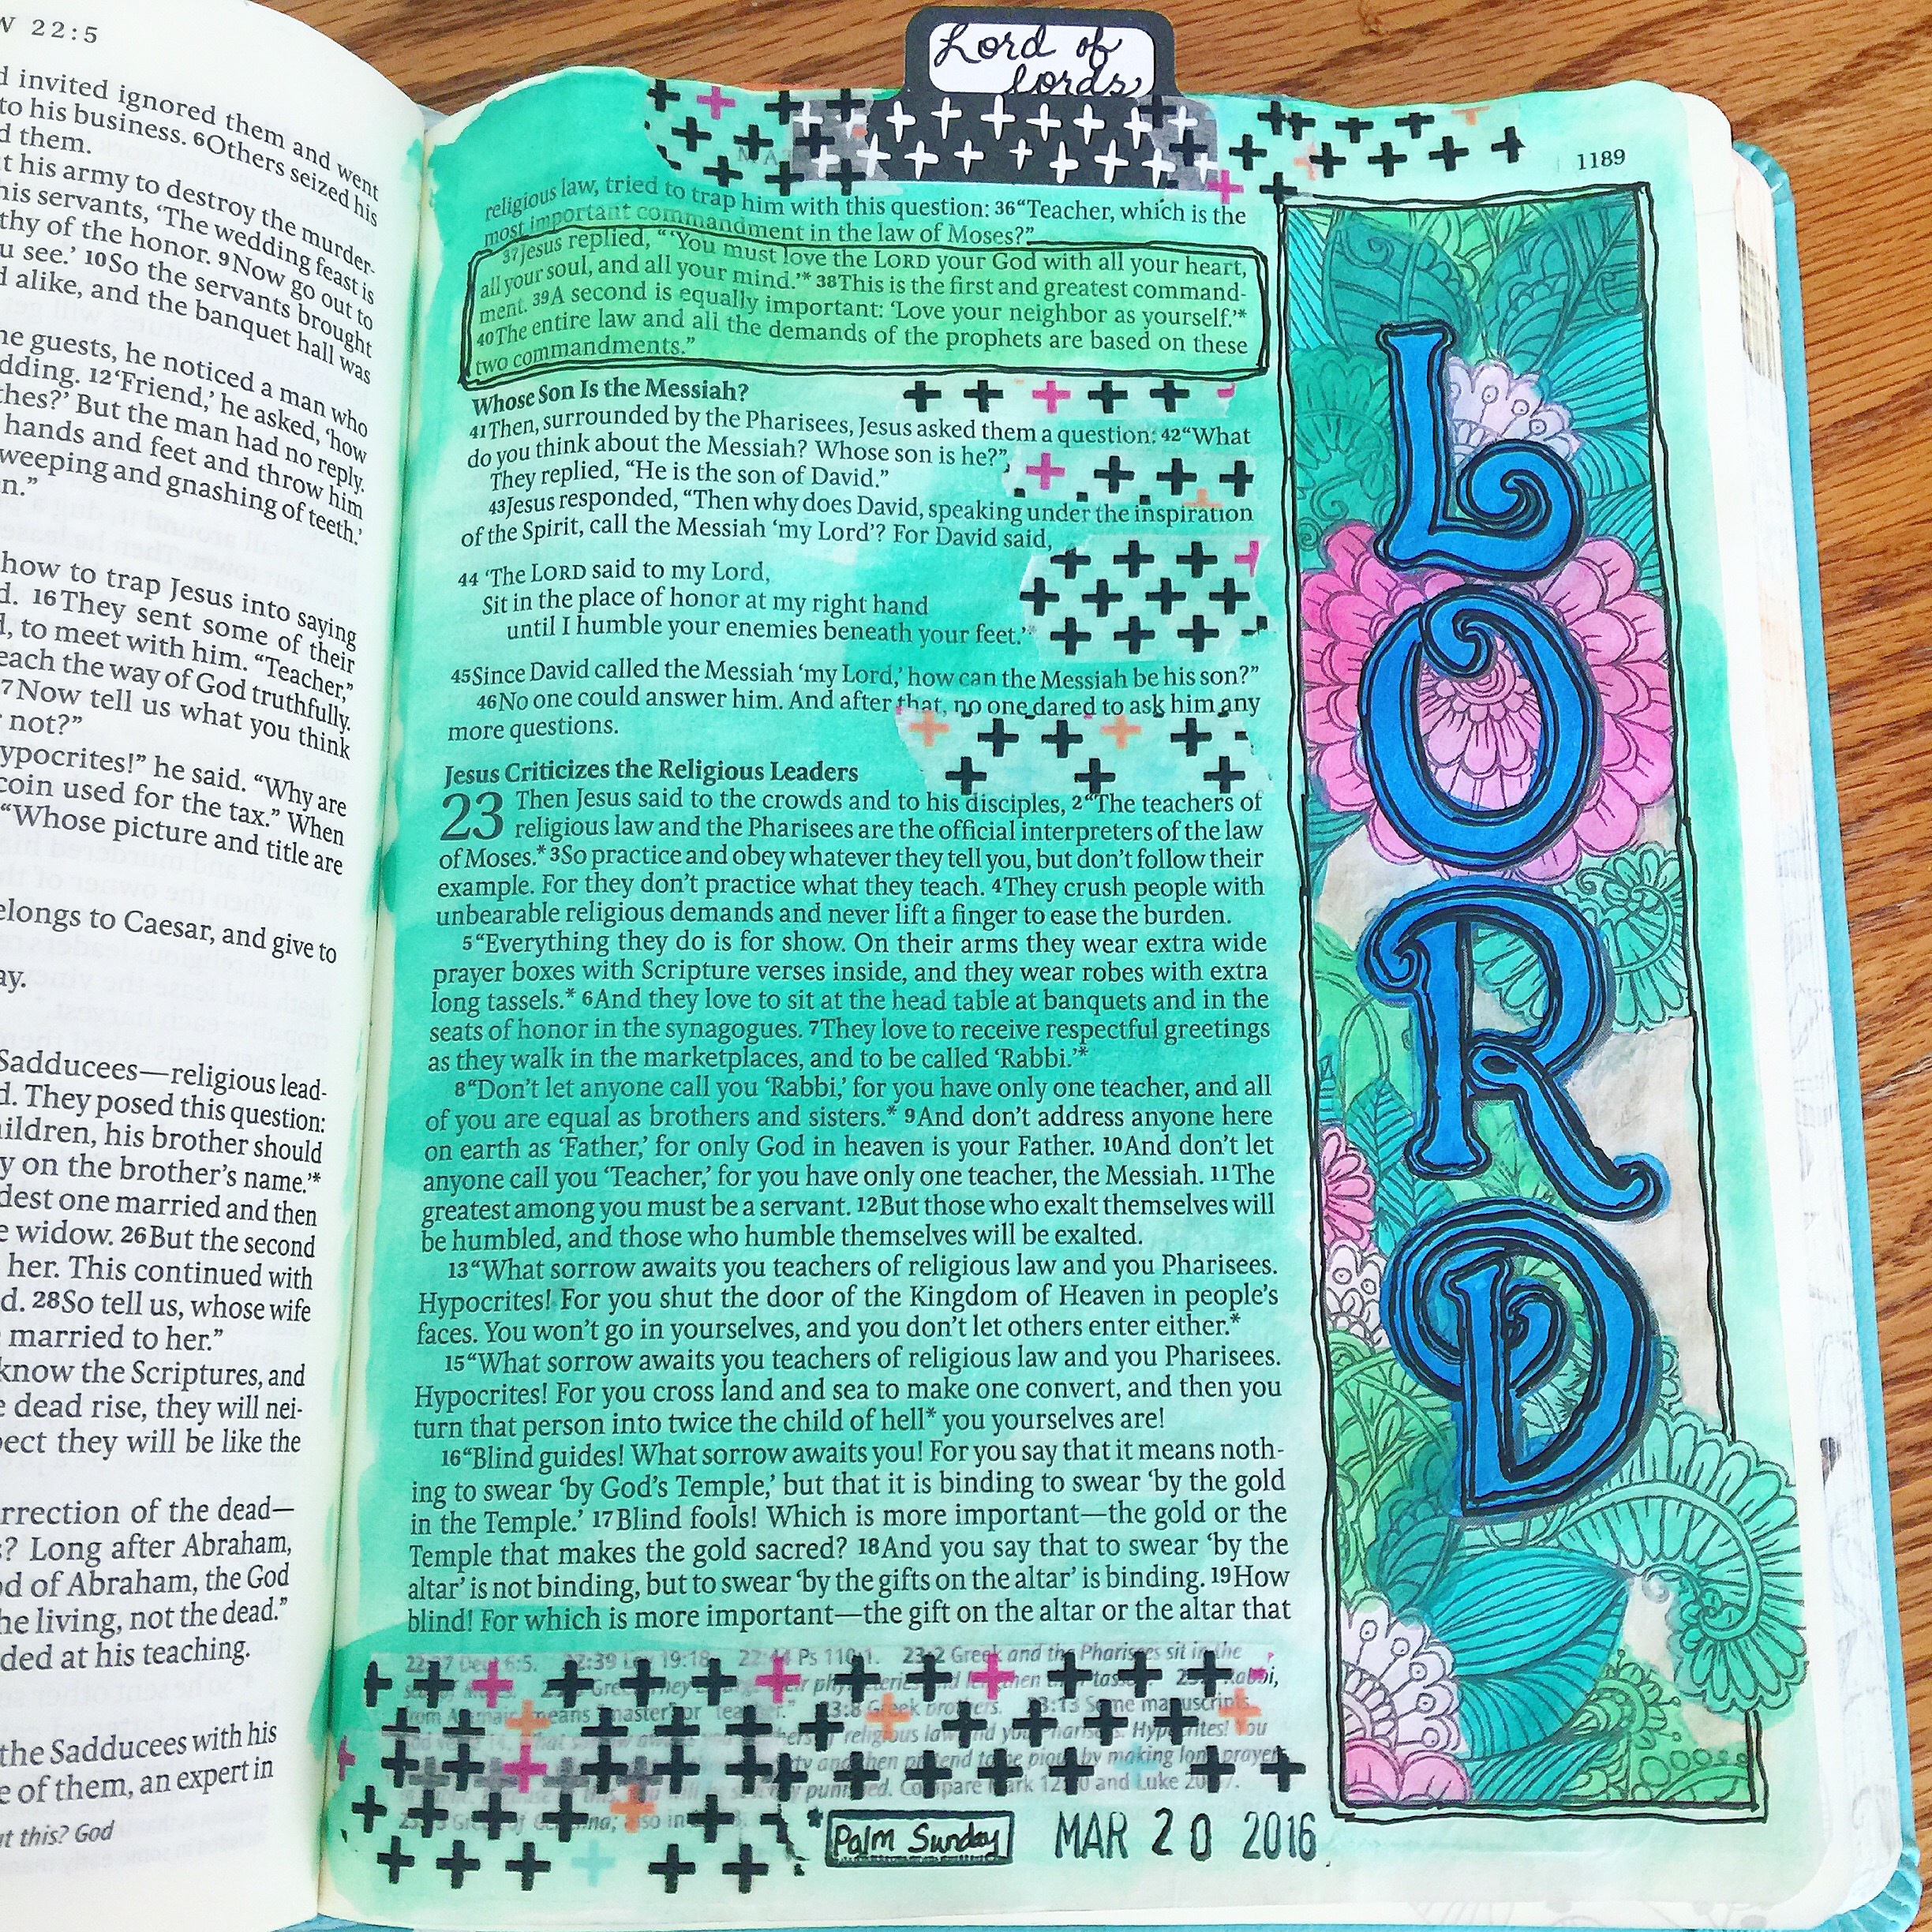 W 22:5
d invited ignored them and went
to his business. 6Others seized his
d them.
t his army to destroy the murder-
his servants, ‘The wedding feast is
thy of the honor. 9Now go out to
u see.’ 10So the servants brought
d alike, and the banquet hall was
he guests, he noticed a man who
dding. 12‘Friend,’ he asked, ‘how
thes?’ But the man had no reply.
hands and feet and throw him
weeping and gnashing of teeth.’
n.”
how to trap Jesus into saying
d. 16They sent some of their
d, to meet with him. “Teacher,”
each the way of God truthfully.
7Now tell us what you think
not?”
ypocrites!” he said. “Why are
coin used for the tax.” When
“Whose picture and title are
elongs to Caesar, and give to
ay.
Sadducees—religious lead-
d. They posed this question:
ildren, his brother should
y on the brother’s name.’*
dest one married and then
e widow. 26But the second
her. This continued with
d. 28So tell us, whose wife
married to her.”
know the Scriptures, and
e dead rise, they will nei-
pect they will be like the
rrection of the dead—
s? Long after Abraham,
od of Abraham, the God
he living, not the dead.”
ded at his teaching.
the Sadducees with his
e of them, an expert in
ut this? God
Lord of
lords
1189
religious law, tried to trap him with this question: 36“Teacher, which is the
most important commandment in the law of Moses?”
37Jesus replied, “‘You must love the LORD your God with all your heart,
all your soul, and all your mind.’* 38This is the first and greatest command-
ment. 39A second is equally important: ‘Love your neighbor as yourself.’*
40The entire law and all the demands of the prophets are based on these
two commandments.”
Whose Son Is the Messiah?
41Then, surrounded by the Pharisees, Jesus asked them a question: 42“What
do you think about the Messiah? Whose son is he?”
They replied, “He is the son of David.”
43Jesus responded, “Then why does David, speaking under the inspiration
of the Spirit, call the Messiah ‘my Lord’? For David said,
44 ‘The LORD said to my Lord,
Sit in the place of honor at my right hand
until I humble your enemies beneath your feet.’*
45Since David called the Messiah ‘my Lord,’ how can the Messiah be his son?”
46No one could answer him. And after that, no one dared to ask him any
more questions.
Jesus Criticizes the Religious Leaders
23 Then Jesus said to the crowds and to his disciples, 2“The teachers of
religious law and the Pharisees are the official interpreters of the law
of Moses.* 3So practice and obey whatever they tell you, but don’t follow their
example. For they don’t practice what they teach. 4They crush people with
unbearable religious demands and never lift a finger to ease the burden.
5“Everything they do is for show. On their arms they wear extra wide
prayer boxes with Scripture verses inside, and they wear robes with extra
long tassels.* 6And they love to sit at the head table at banquets and in the
seats of honor in the synagogues. 7They love to receive respectful greetings
as they walk in the marketplaces, and to be called ‘Rabbi.’*
8“Don’t let anyone call you ‘Rabbi,’ for you have only one teacher, and all
of you are equal as brothers and sisters.* 9And don’t address anyone here
on earth as ‘Father,’ for only God in heaven is your Father. 10And don’t let
anyone call you ‘Teacher,’ for you have only one teacher, the Messiah. 11The
greatest among you must be a servant. 12But those who exalt themselves will
be humbled, and those who humble themselves will be exalted.
13“What sorrow awaits you teachers of religious law and you Pharisees.
Hypocrites! For you shut the door of the Kingdom of Heaven in people’s
faces. You won’t go in yourselves, and you don’t let others enter either.*
15“What sorrow awaits you teachers of religious law and you Pharisees.
Hypocrites! For you cross land and sea to make one convert, and then you
turn that person into twice the child of hell* you yourselves are!
16“Blind guides! What sorrow awaits you! For you say that it means noth-
ing to swear ‘by God’s Temple,’ but that it is binding to swear ‘by the gold
in the Temple.’ 17Blind fools! Which is more important—the gold or the
Temple that makes the gold sacred? 18And you say that to swear ‘by the
altar’ is not binding, but to swear ‘by the gifts on the altar’ is binding. 19How
blind! For which is more important—the gift on the altar or the altar that
22:39 19:18. 22:44 Ps 110:1. 23:2 Greek and the Pharisees sit in the
means 23:8 Greek brothers. 23:13 Some manuscripts
religious law and you Pharisees. Hypocrites! You
and then pretend to be pious by making long prayers
punished. Compare Mark 12:40 and Luke
*Palm Sunday MAR 20 2016
LORD